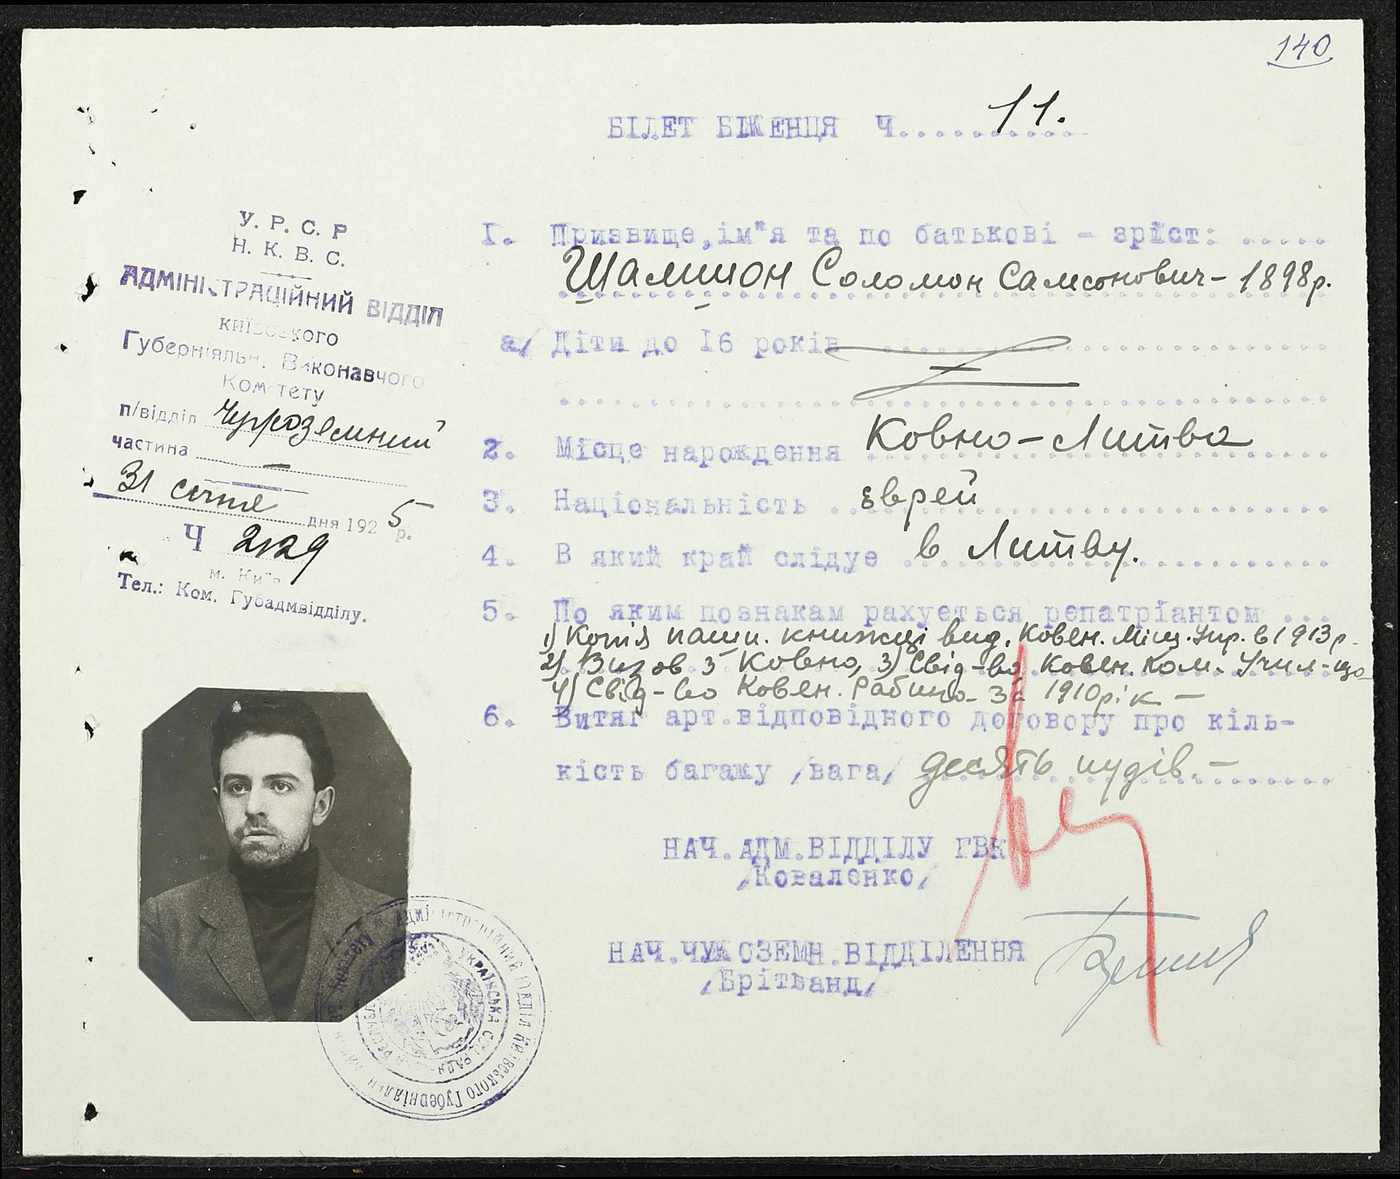 140
БІЛЕТ БІЖЕНЦЯ Ч. 11.
У. Р. С. Р
Н. К. В. С.
АДМІНІСТРАЦІЙНИЙ ВІДДІЛ
КИЇВСЬКОГО
Губерніяльн. Виконавчого
Комітету
п/відділ Чужоземний
частина —
31 січня дня 1925 р.
Ч 2129
м. Київ
Тел.: Ком. Губадмвідділу.
I. Призвище, ім"я та по батькові – зріст: .....
Шамшон Соломон Самсонович – 1898 р.
а/ Діти до 16 років
2. Місце народження Ковно – Литва
3. Національність єврей
4. В який край слідує в Литву.
5. По яким познакам рахується репатріантом ...
1) Копія пашп. книжці вид. Ковен. Міщ. Упр. в 1913 р.
2) Визов з Ковно, 3) Свід-во Ковен. Ком. Учил-ща
4) Свід-во Ковен. Рабина за 1910 рік –
6. Витяг арт. відповідного договору про кіль-
кість багажу /вага/ десять пудів. –
НАЧ. АДМ. ВІДДІЛУ ГВК
/Коваленко/
НАЧ. ЧУЖОЗЕМН. ВІДДІЛЕННЯ
/Брітванд/